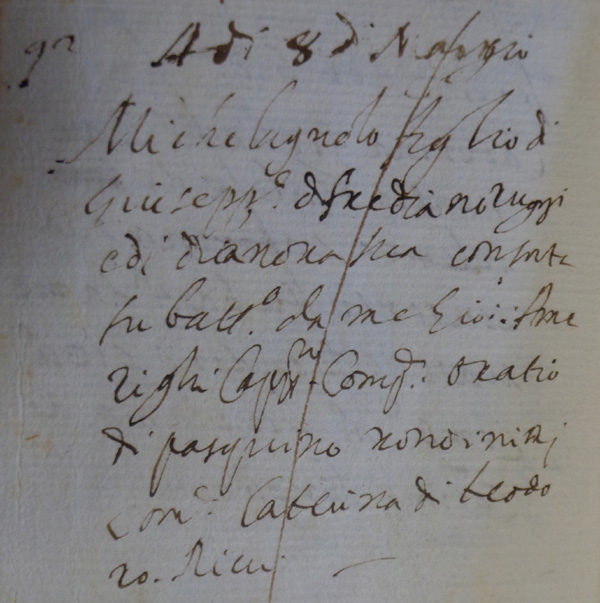 92 A di 8 di Maggio
Michelagnolo figlio di
Giusepp.e di frediano
e di dianora sua consorte
fu batt.o da me Gio:
righi Capp.no Comp.e Oratio
di pasquino
com.e Caterina di teodo
ro. Ricci.